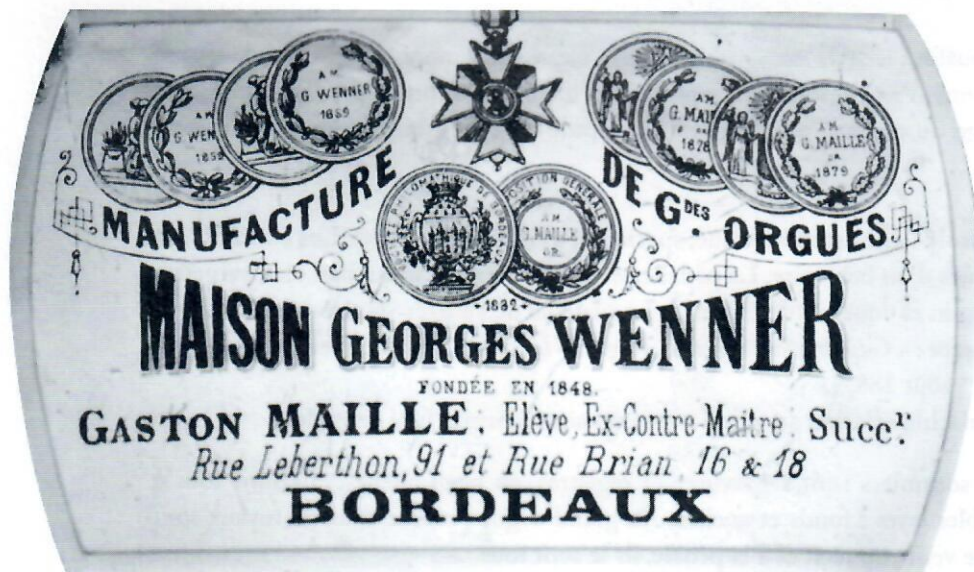 A M
G. WENNER
1859
A M
G. WENNER
1859
A M
G. MAILLE
OR
1878
A M
G. MAILLE
OR
1879
MANUFACTURE DE Gdes ORGUES
SOCIÉTÉ PHILOMATHIQUE DE BORDEAUX
EXPOSITION GÉNÉRALE
A M
G. MAILLE
OR.
1882
MAISON GEORGES WENNER
FONDÉE EN 1848.
GASTON MAILLE. Elève, Ex-Contre-Maitre. Succr.
Rue Leberthon, 91 et Rue Brian, 16 & 18
BORDEAUX